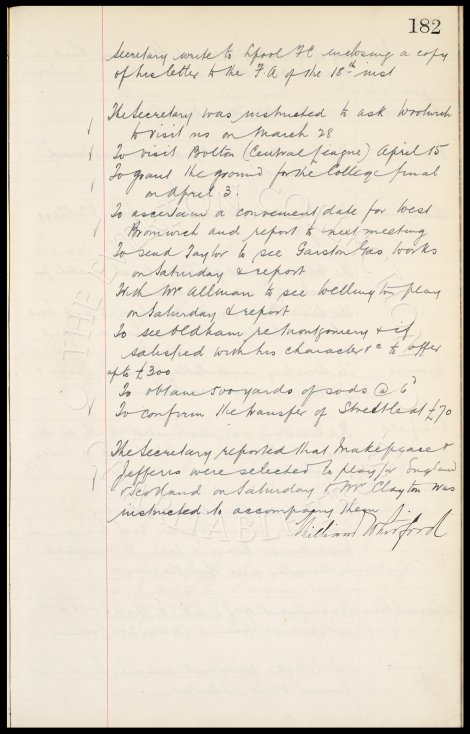 182
Secretary write to Lpool FC inclosing a copy
of his letter to the F A of the 18th inst
The Secretary was instructed to ask Woolwich
to visit us on March 28
To visit Bolton (Central League) April 15
To grant the ground for the College final
on April 3.
To ascertain a convenient date for West
Bromwich and report to next meeting
To send Taylor to see Garston Gas Works
on Saturday & report
With Mr Allman to see Wellington play
on Saturday & report
To see Oldham re Montgomery & if
satisfied with his character &c to offer
up to £300
To obtain 500 yards of sods @ 6d
To confirm the transfer of Streetle at £70
The Secretary reported that Makepeace &
Jefferis were selected to play for England
v Scotland on Saturday & Mr Clayton was
instructed to accompany them
William Whitford